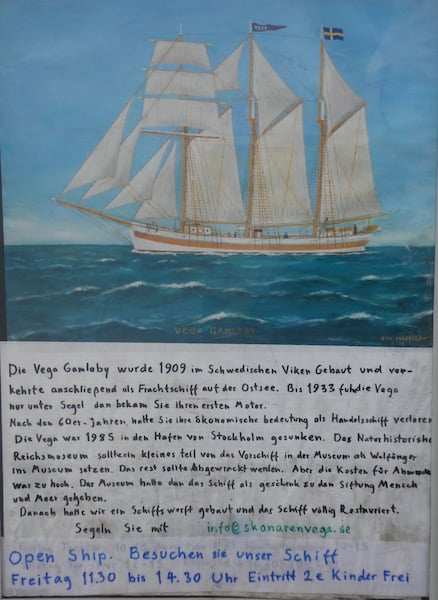 VEGA
VEGA GAMLEBY
Die Vega Gamleby wurde 1909 im Schwedischen Viken Gebaut und ver-
kehrte anschließend als Frachtschiff auf der Ostsee. Bis 1933 fuhr die Vega
nur unter Segel dan bekam Sie Ihren ersten Motor.
Nach den 60er-Jahren hatte Sie ihre ökonomische bedeutung als Handelsschiff verloren
Die Vega war 1985 in den Hafen von Stockholm gesunken. Das Naturhistorische
Reichsmuseum sollte ein kleines teil von das Vorschiff in der Museum als Walfänger
ins Museum setzen. Das rest sollte Abgewrackt werden. Aber die Kosten für
war zu hoch. Das Museum hatte dan das Schiff als geschenk zu dan Siftung Mensch
und Meer geheben.
Danach hatte wir ein Schiffs werft gebaut und das Schiff völlig Restauriert.
Segeln Sie mit info@skonarenvega.se
Open Ship. Besuchen sie unser Schiff
Freitag 11.30 bis 14.30 Uhr Eintritt 2e Kinder Frei